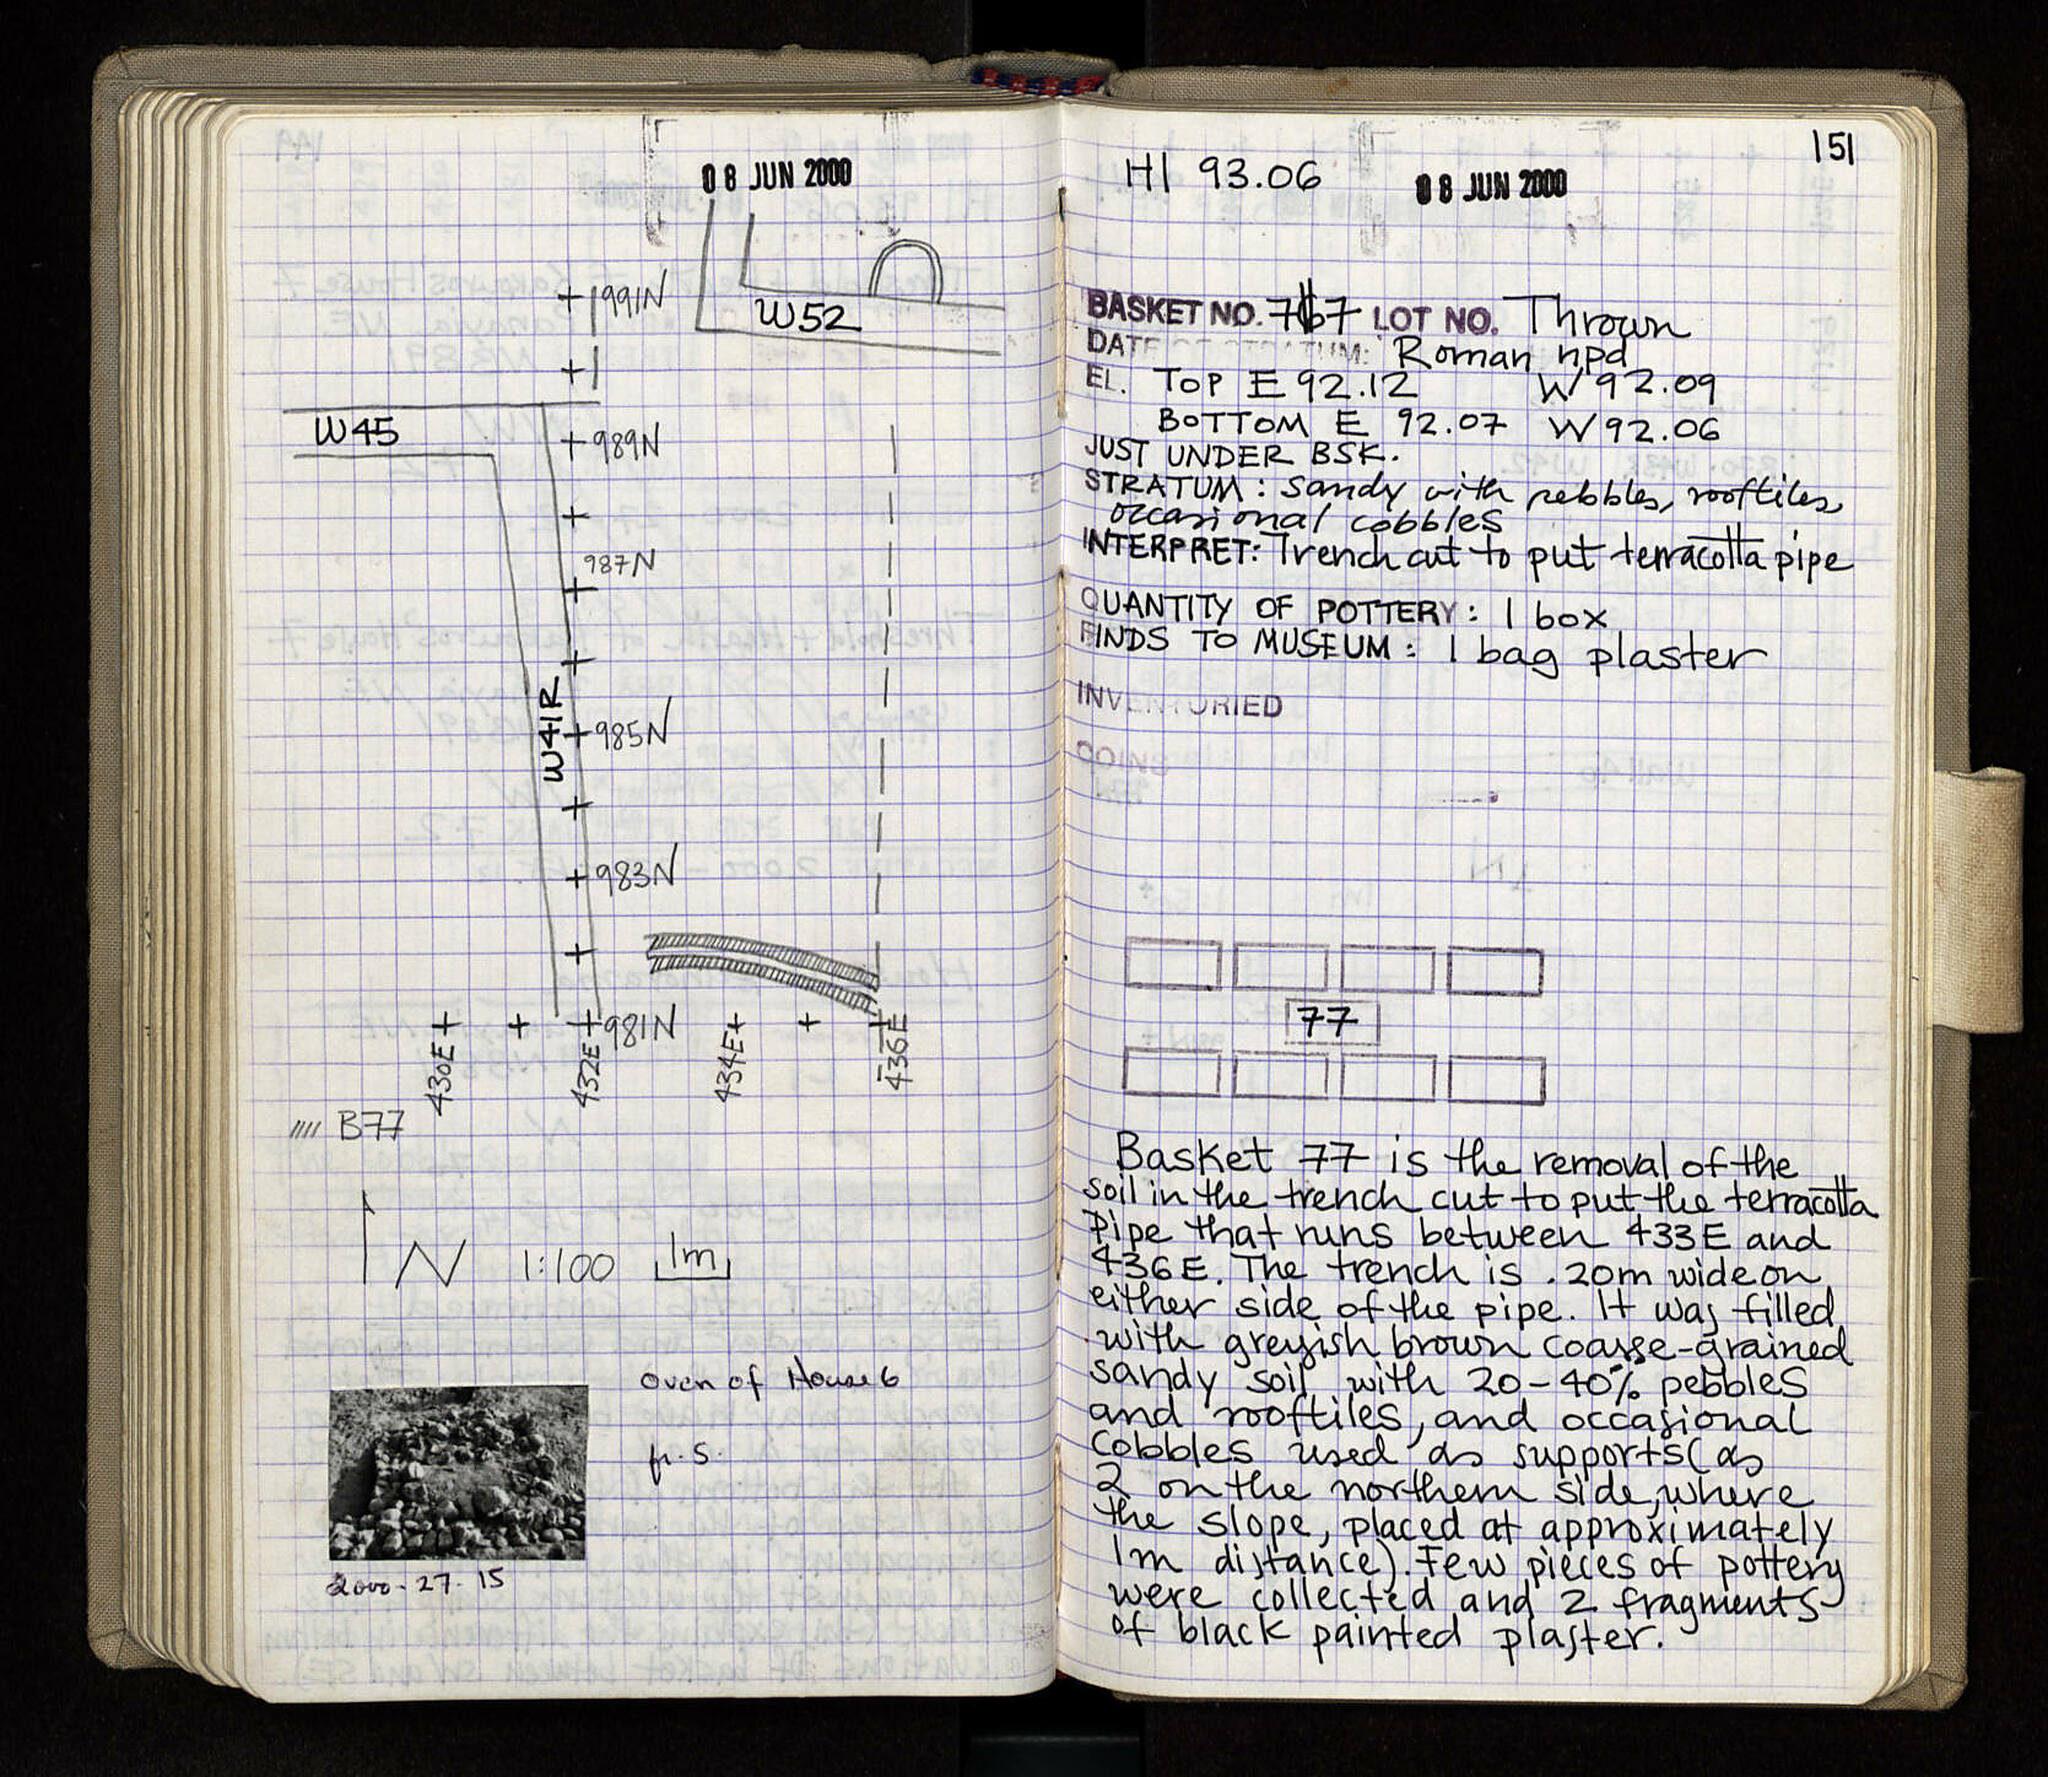 08 JUN 2000
991N
W52
W45
989N
987N
W41R
985N
983N
981N
430E
432E
434E
436E
B77
N 1:100 1m
Oven of House 6
fr. S.
2000-27-15
151
HI 93.06
08 JUN 2000
BASKET NO. 77 LOT NO. Thrown
DATE OF STRATUM: Roman npd
EL. TOP E 92.12 W 92.09
BOTTOM E 92.07 W 92.06
JUST UNDER BSK.
STRATUM: Sandy with pebbles, rooftiles,
occasional cobbles
INTERPRET: Trench cut to put terracotta pipe
QUANTITY OF POTTERY: 1 box
FINDS TO MUSEUM: 1 bag plaster
INVENTORIED
COINS
77
Basket 77 is the removal of the
soil in the trench cut to put the terracotta
pipe that runs between 433E and
436E. The trench is .20m wide on
either side of the pipe. It was filled
with greyish brown coarse-grained
sandy soil with 20-40% pebbles
and rooftiles, and occasional
cobbles used as supports (as
2 on the northern side, where
the slope, placed at approximately
1m distance). Few pieces of pottery
were collected and 2 fragments
of black painted plaster.